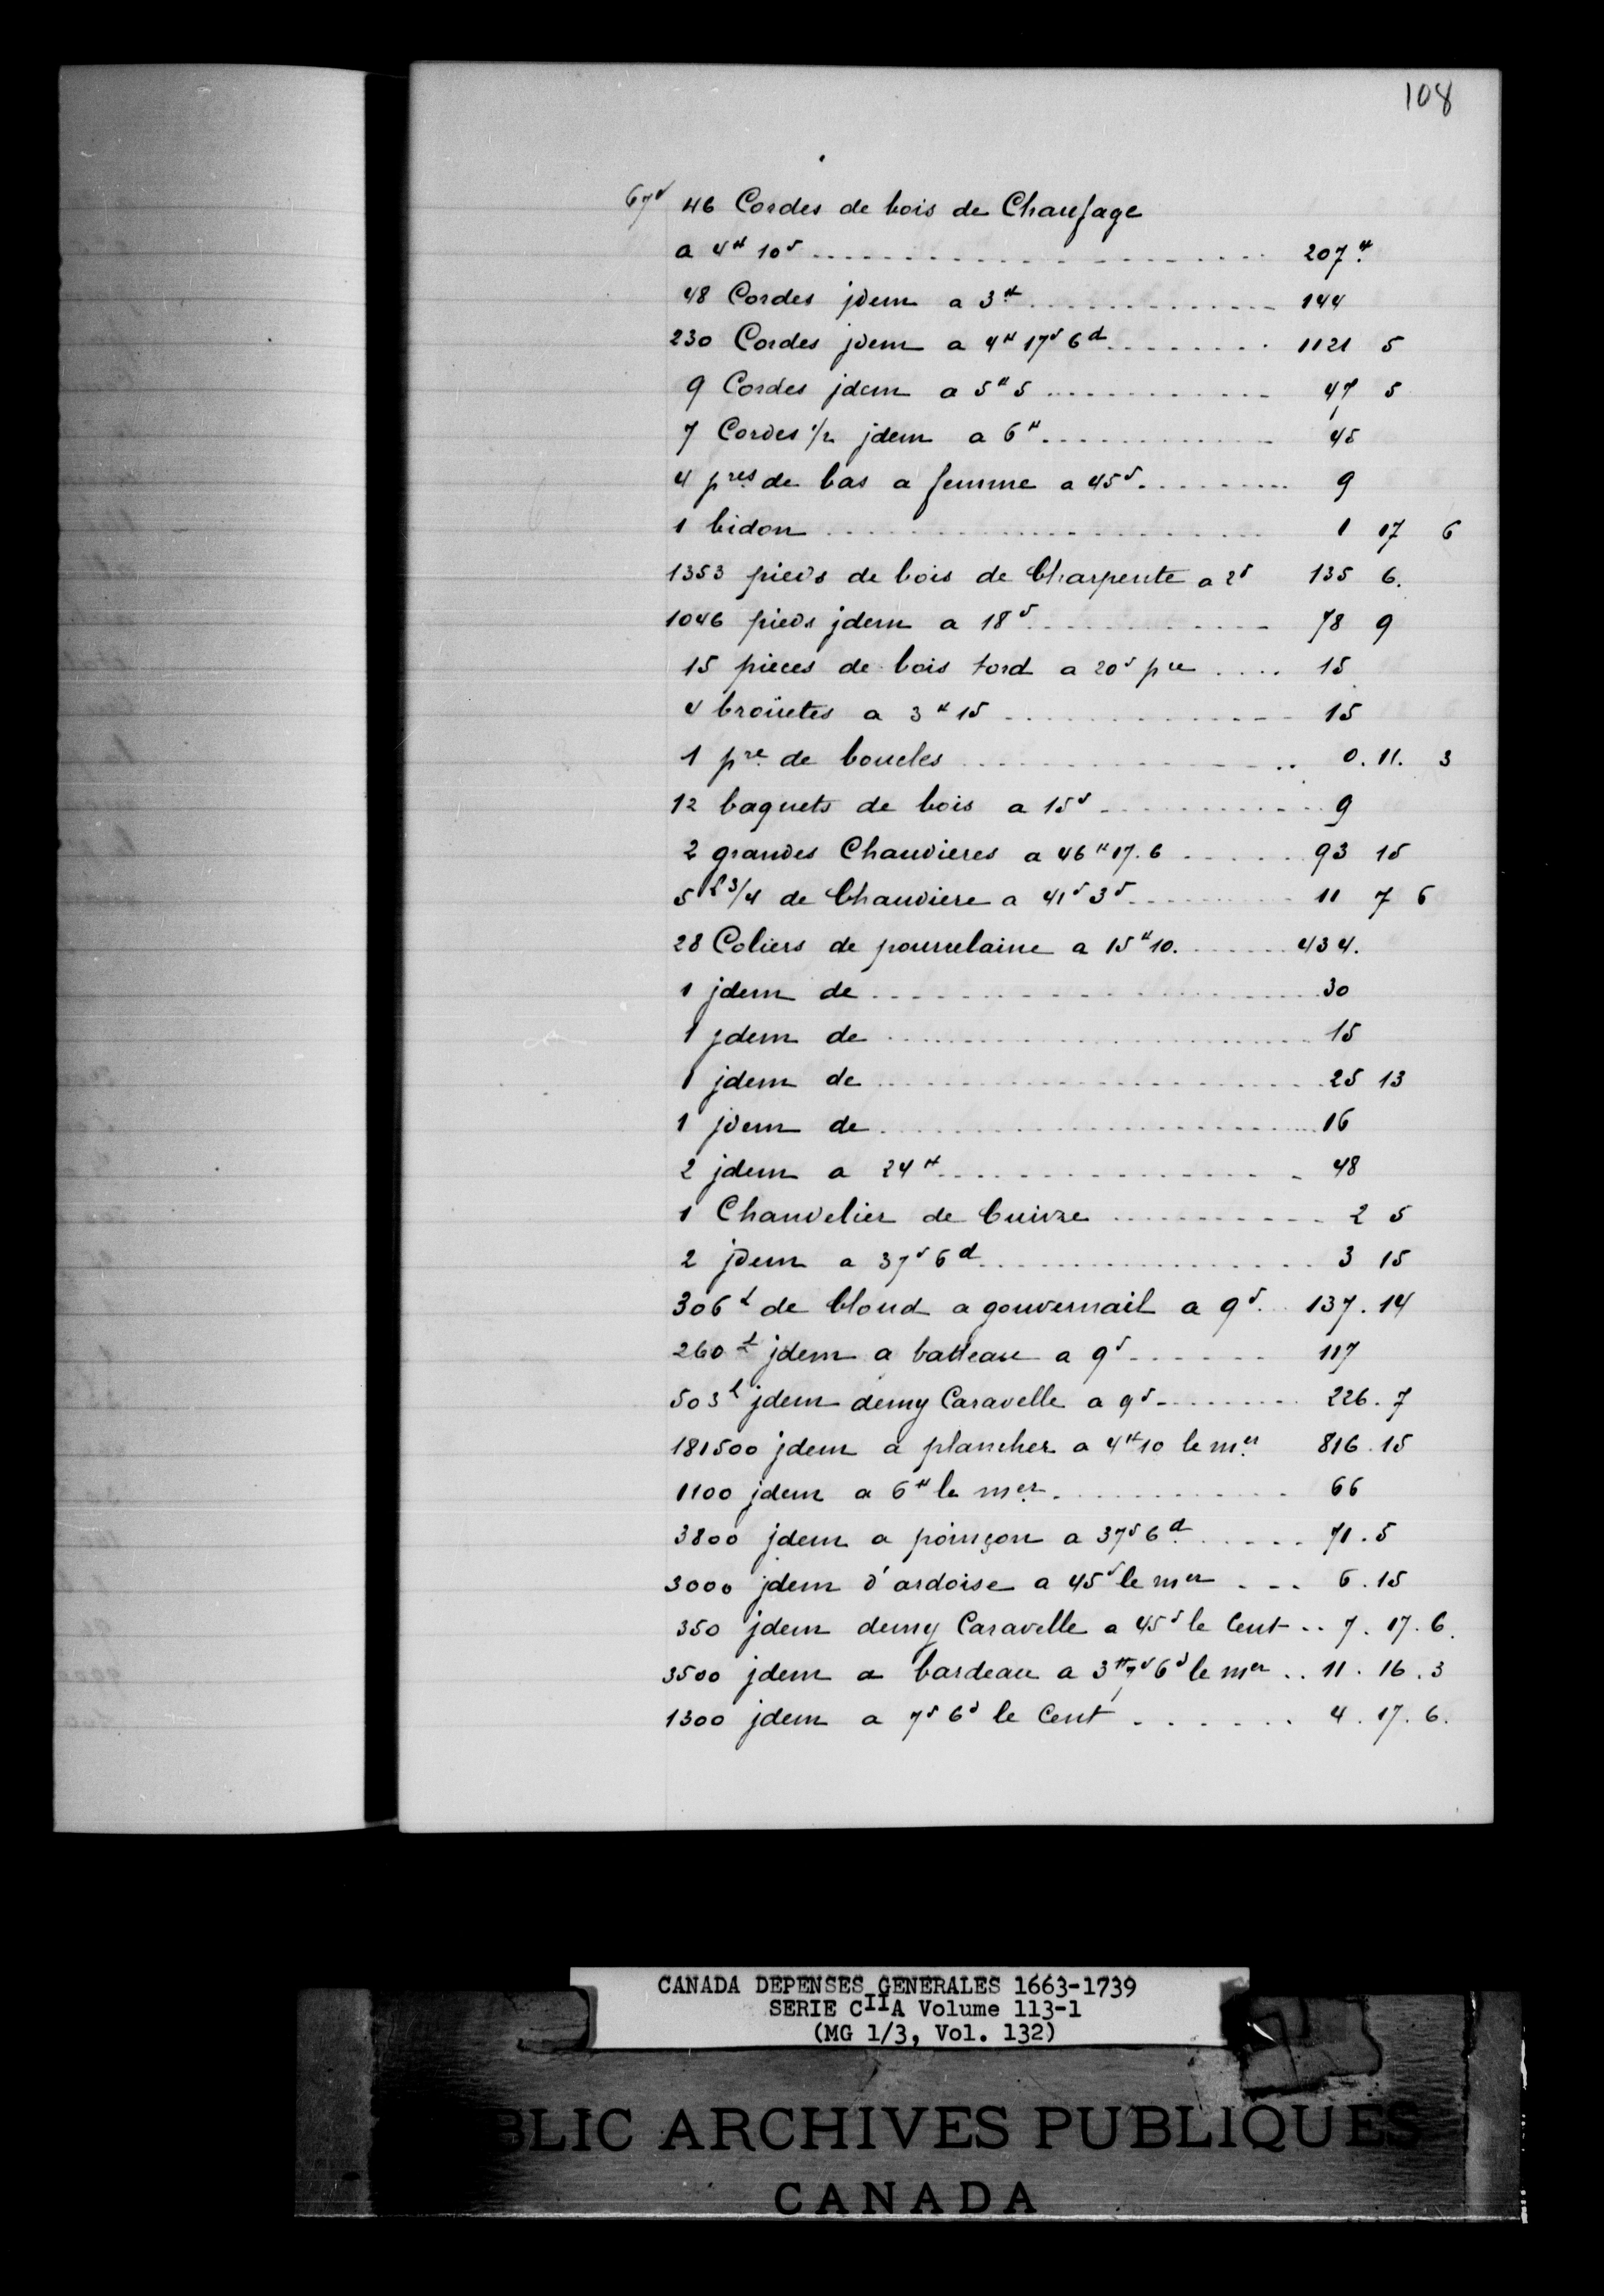 108
67v 46 Cordes de bois de Chaufage
a 4ᴴ 10ˢ ........ 207ᴴ
48 Cordes jdem a 3ᴴ ........ 144
230 Cordes jdem a 4ᴴ 17ˢ 6ᵈ ........ 1121 5
9 Cordes jdem a 5ᴴ 5 ........ 47 5
7 Cordes 1/2 jdem a 6ᴴ ........ 45
4 pres de bas a femme a 45ˢ ........ 9
1 bidon ........ 1 17 6
1353 pieds de bois de Charpente a 2ˢ 135 6.
1046 pieds jdem a 18ᵈ ........ 78 9
15 pieces de bois tord a 20ˢ pce .... 15
4 broüetes a 3ᴴ 15 ........ 15
1 pre de boucles ........ 0. 11. 3
12 baquets de bois a 15ˢ ........ 9
2 grandes Chaudieres a 46ᴴ 17. 6 ...... 93 15
5ˡ 3/4 de Chaudiere a 41ˢ 3ᵈ ........ 11 7 6
28 Coliers de pourcelaine a 15ᴴ 10. ...... 434.
1 jdem de ........ 30
1 jdem de ........ 15
1 jdem de ........ 25 13
1 jdem de ........ 16
2 jdem a 24ᴴ ........ 48
1 Chandelier de Cuivre ........ 2 5
2 jdem a 37ˢ 6ᵈ ........ 3 15
306ˡ de cloud a gouvernail a 9ˢ .. 137. 14
260ˡ jdem a batteau a 9ˢ ...... 117
503ˡ jdem demy Caravelle a 9ˢ ........ 226. 7
181500 jdem a plancher a 4ᴴ 10 le mer 816. 15
1100 jdem a 6ᴴ le mer ........ 66
3800 jdem a poinçon a 37ˢ 6ᵈ ..... 71. 5
3000 jdem d'ardoise a 45ˢ le mer ... 6. 15
350 jdem demy Caravelle a 45ˢ le Cent .. 7. 17. 6.
3500 jdem a bardeau a 3ᴴ 7ˢ 6ᵈ le mer .. 11. 16. 3
1300 jdem a 7ˢ 6ᵈ le Cent ....... 4. 17. 6.
CANADA DEPENSES GENERALES 1663-1739
SERIE CIIA Volume 113-1
(MG 1/3, Vol. 132)
BLIC ARCHIVES PUBLIQUES
CANADA